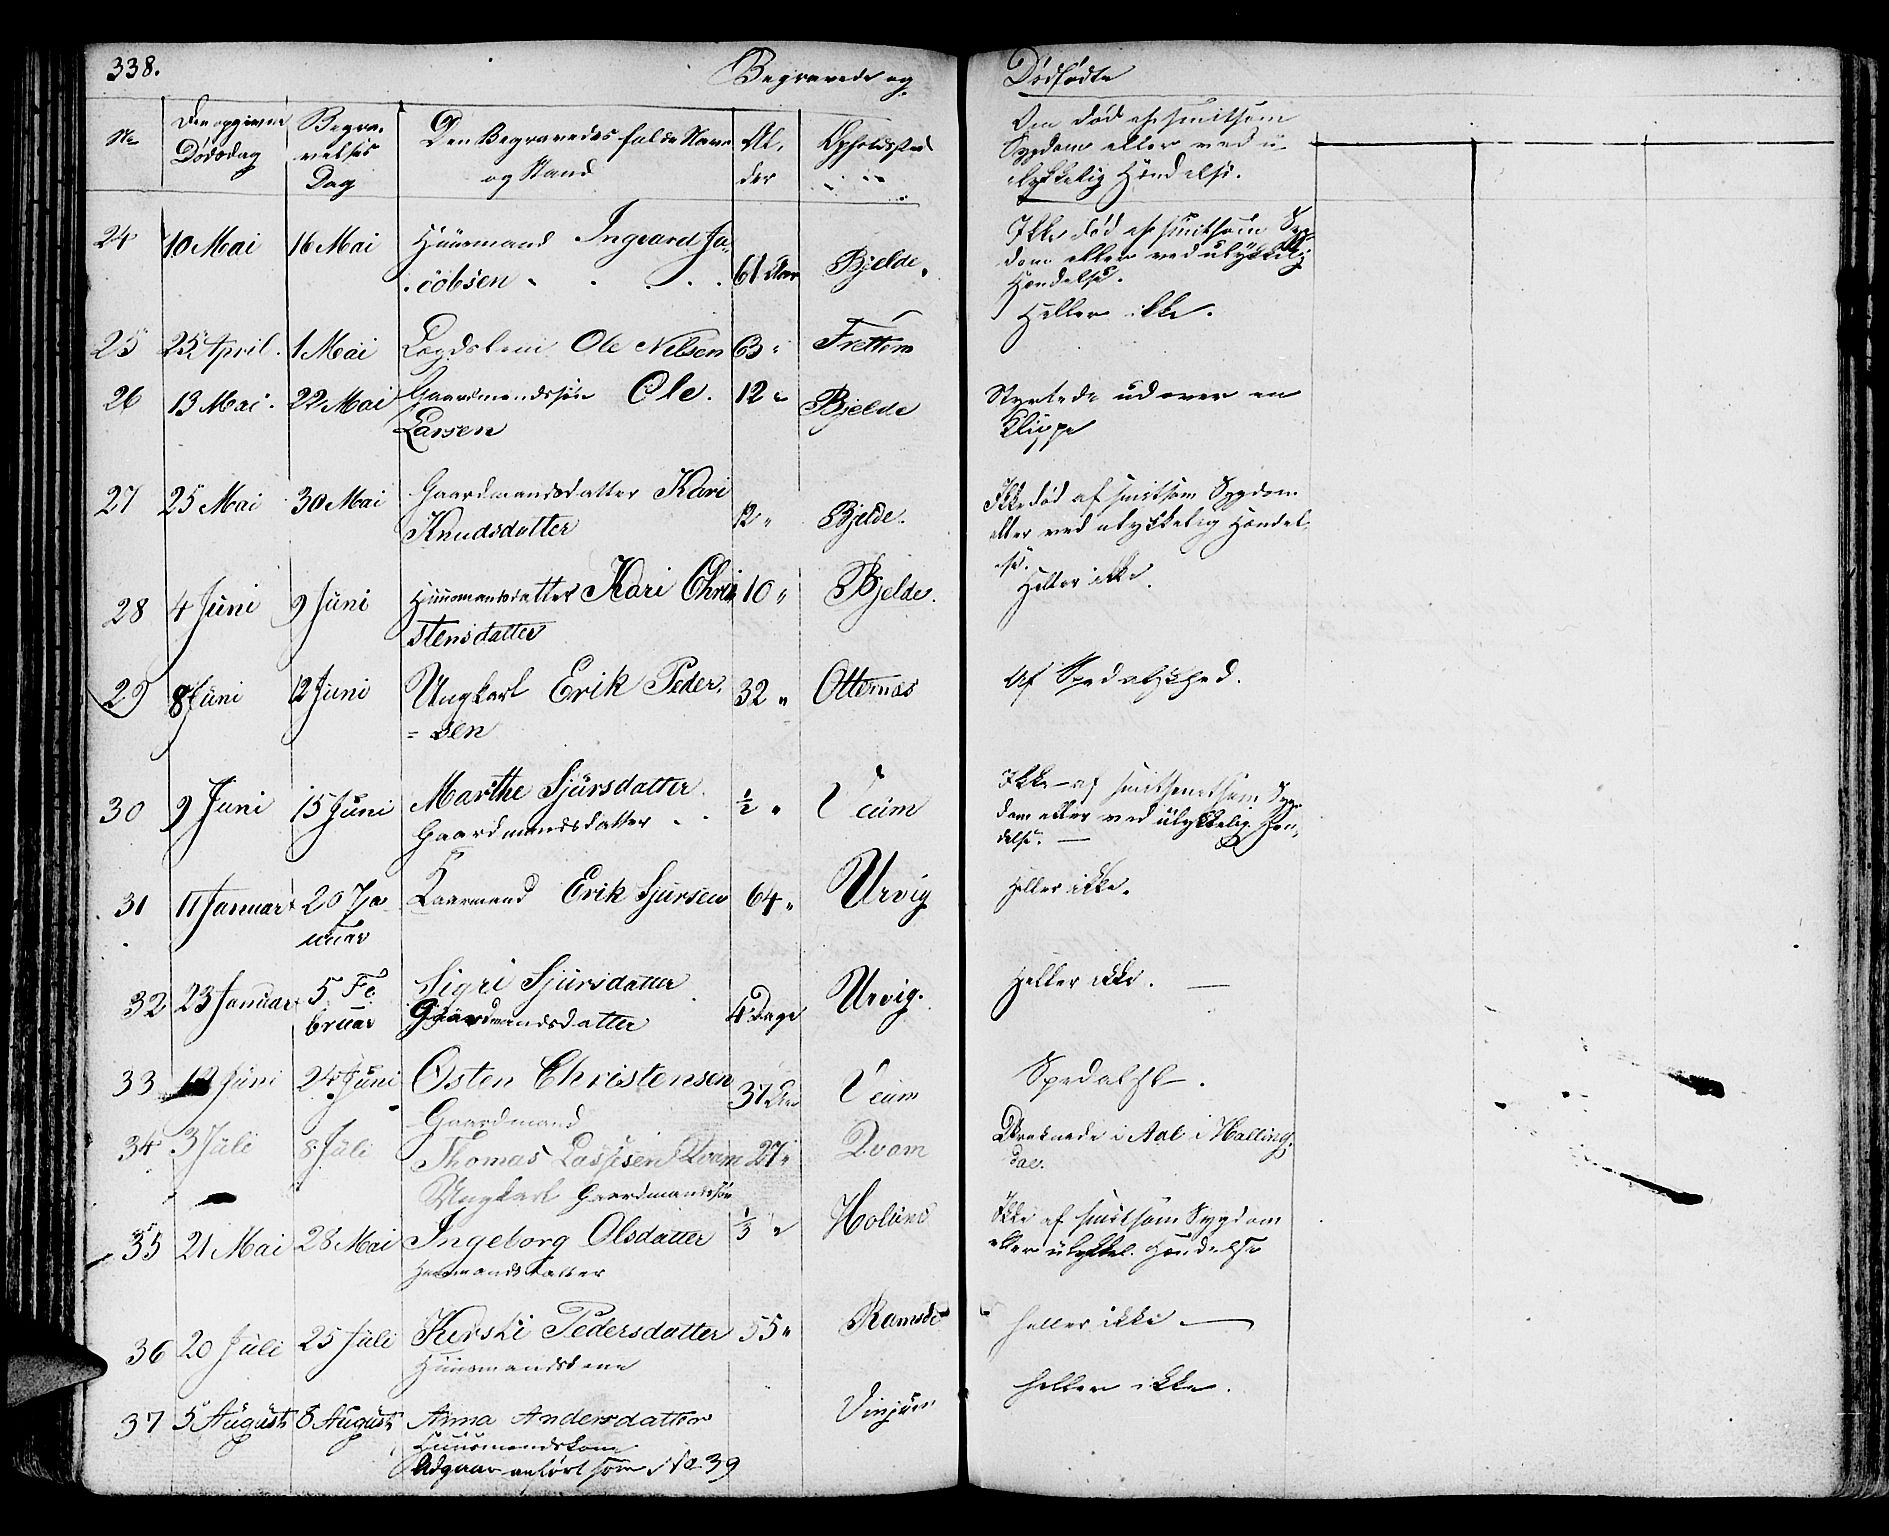 338.
Begravede og
Dødfødte
No
Den opgivne Dødsdag
Begravelses Dag
Den Begravedes fulde Navn og Stand
Alder
Opholdssted
Om død af smitsom
Sygdom eller ved u-
lykkelig Hændelse.
24 10 Mai 16 Mai Huusmand Ingvard Ja-
cobsen 61 Aar Bjelde.
Ikke død af smitsom Syg-
dom eller ved ulykkelig
Hændelse.
25 25 April. 1 Mai Lægdslem Ole Nelsen 63 " Frettem
Heller ikke.
26 13 Mai. 22 Mai Gaardmandssøn Ole.
Larsen 12 " Bjelde
Styrtede ud over en
Klippe
27 25 Mai 30 Mai Gaardmandsdatter Kari
Knudsdatter 12 " Bjelde.
Ikke død af smitsom Sygdom
eller ved ulykkelig Hændel-
se.
28 4 Juni 9 Juni Huusmandsdatter Kari Chri
stensdatter 10 " Bjelde.
Heller ikke.
29 8 Juni 12 Juni Ungkarl Erik Peder-
= sen 32 " Otternæs
Af Spedalskhed.
30 9 Juni 15 Juni Marthe Sjursdatter
Gaardmandsdatter 1/2 " Veum
Ikke af smitsom Syg-
dom eller ved ulykkelig Hæn-
delse.
31 11 Januar 20 Ja
nuar Kaarmand Erik Sjursen 64 " Urvig
Heller ikke.
32 23 Januar 5 Fe
bruar Sigri Sjursdatter
Gaardmandsdatter 4 Dage Urvig.
Heller ikke.
33 12 Juni 24 Juni Østen Christensen
Gaardmand 37 Aar Veum
Spedalsk.
34 3 Juli 8 Juli Thomas Lassesen Qvam
Ungkarl Gaardmandssøn 27 " Qvam
Druknede i Aal i Halling-
dal.
35 21 Mai 28 Mai Ingeborg Olsdatter
Huusmandsdatter 1/3 " Holund
Ikke af smitsom Sygdom
eller ulykkel. Hændelse
36 20 Juli 25 Juli Kirsti Pedersdatter
Huusmandskone 55 " Ramsøe
heller ikke
37 5 August 8 August Anna Andersdatter
Huusmandskone
Udgaar anført som No 39 Vinjum
heller ikke.